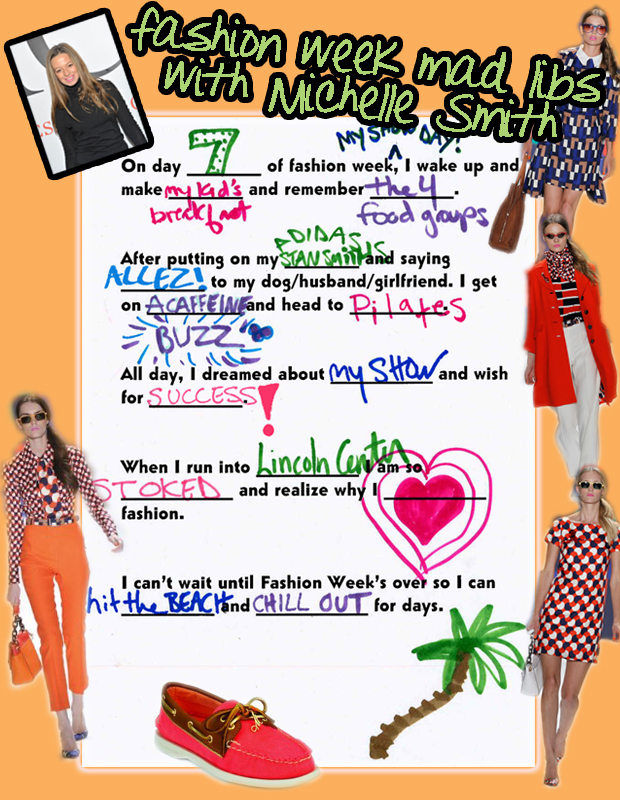 fashion week mad libs
with Michelle Smith
MY SHOW DAY!
On day 7 of fashion week, I wake up and
make my kid's and remember the 4.
breakfast food groups
ADIDAS
After putting on my STAN SMITHS and saying
ALLEZ! to my dog/husband/girlfriend. I get
on A CAFFEINE and head to Pilates.
BUZZ
All day, I dreamed about my SHOW and wish
for SUCCESS!.
When I run into Lincoln Center I am so
STOKED and realize why I
fashion.
I can't wait until Fashion Week's over so I can
hit the BEACH and CHILL OUT for days.